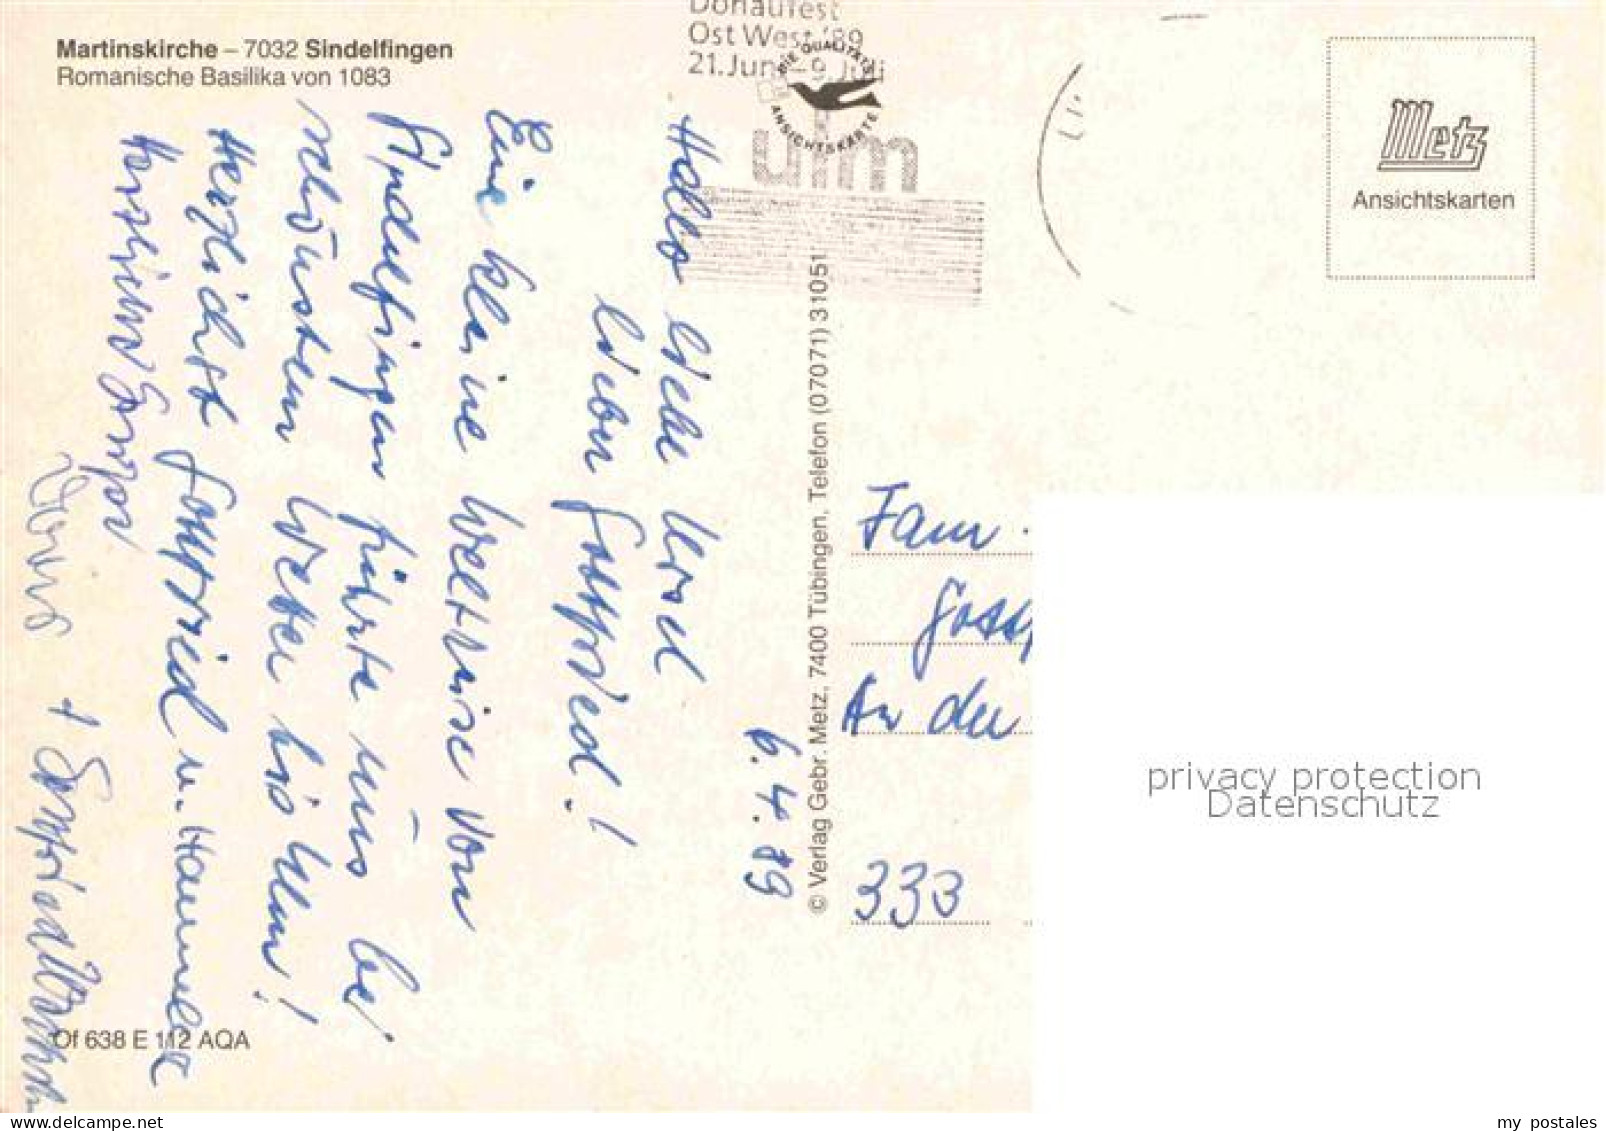 Martinskirche – 7032 Sindelfingen
Romanische Basilika von 1083
Donaufest
Ost West '89
21. Juni – 9. Juli
ulm
DIE QUALITÄTS
ANSICHTSKARTE
Metz
Ansichtskarten
6.4.89
Hallo liebe Ursel
lieber Gottfried!
Eine kleine Weltreise von
Sindelfingen führte uns bei
schönstem Wetter bis Ulm!
Herzlichst Gottfried u. Hannelore
Doris
© Verlag Gebr. Metz, 7400 Tübingen, Telefon (07071) 31051
Fam.
An der
333
privacy protection
Datenschutz
Of 638 E 112 AQA
my postales